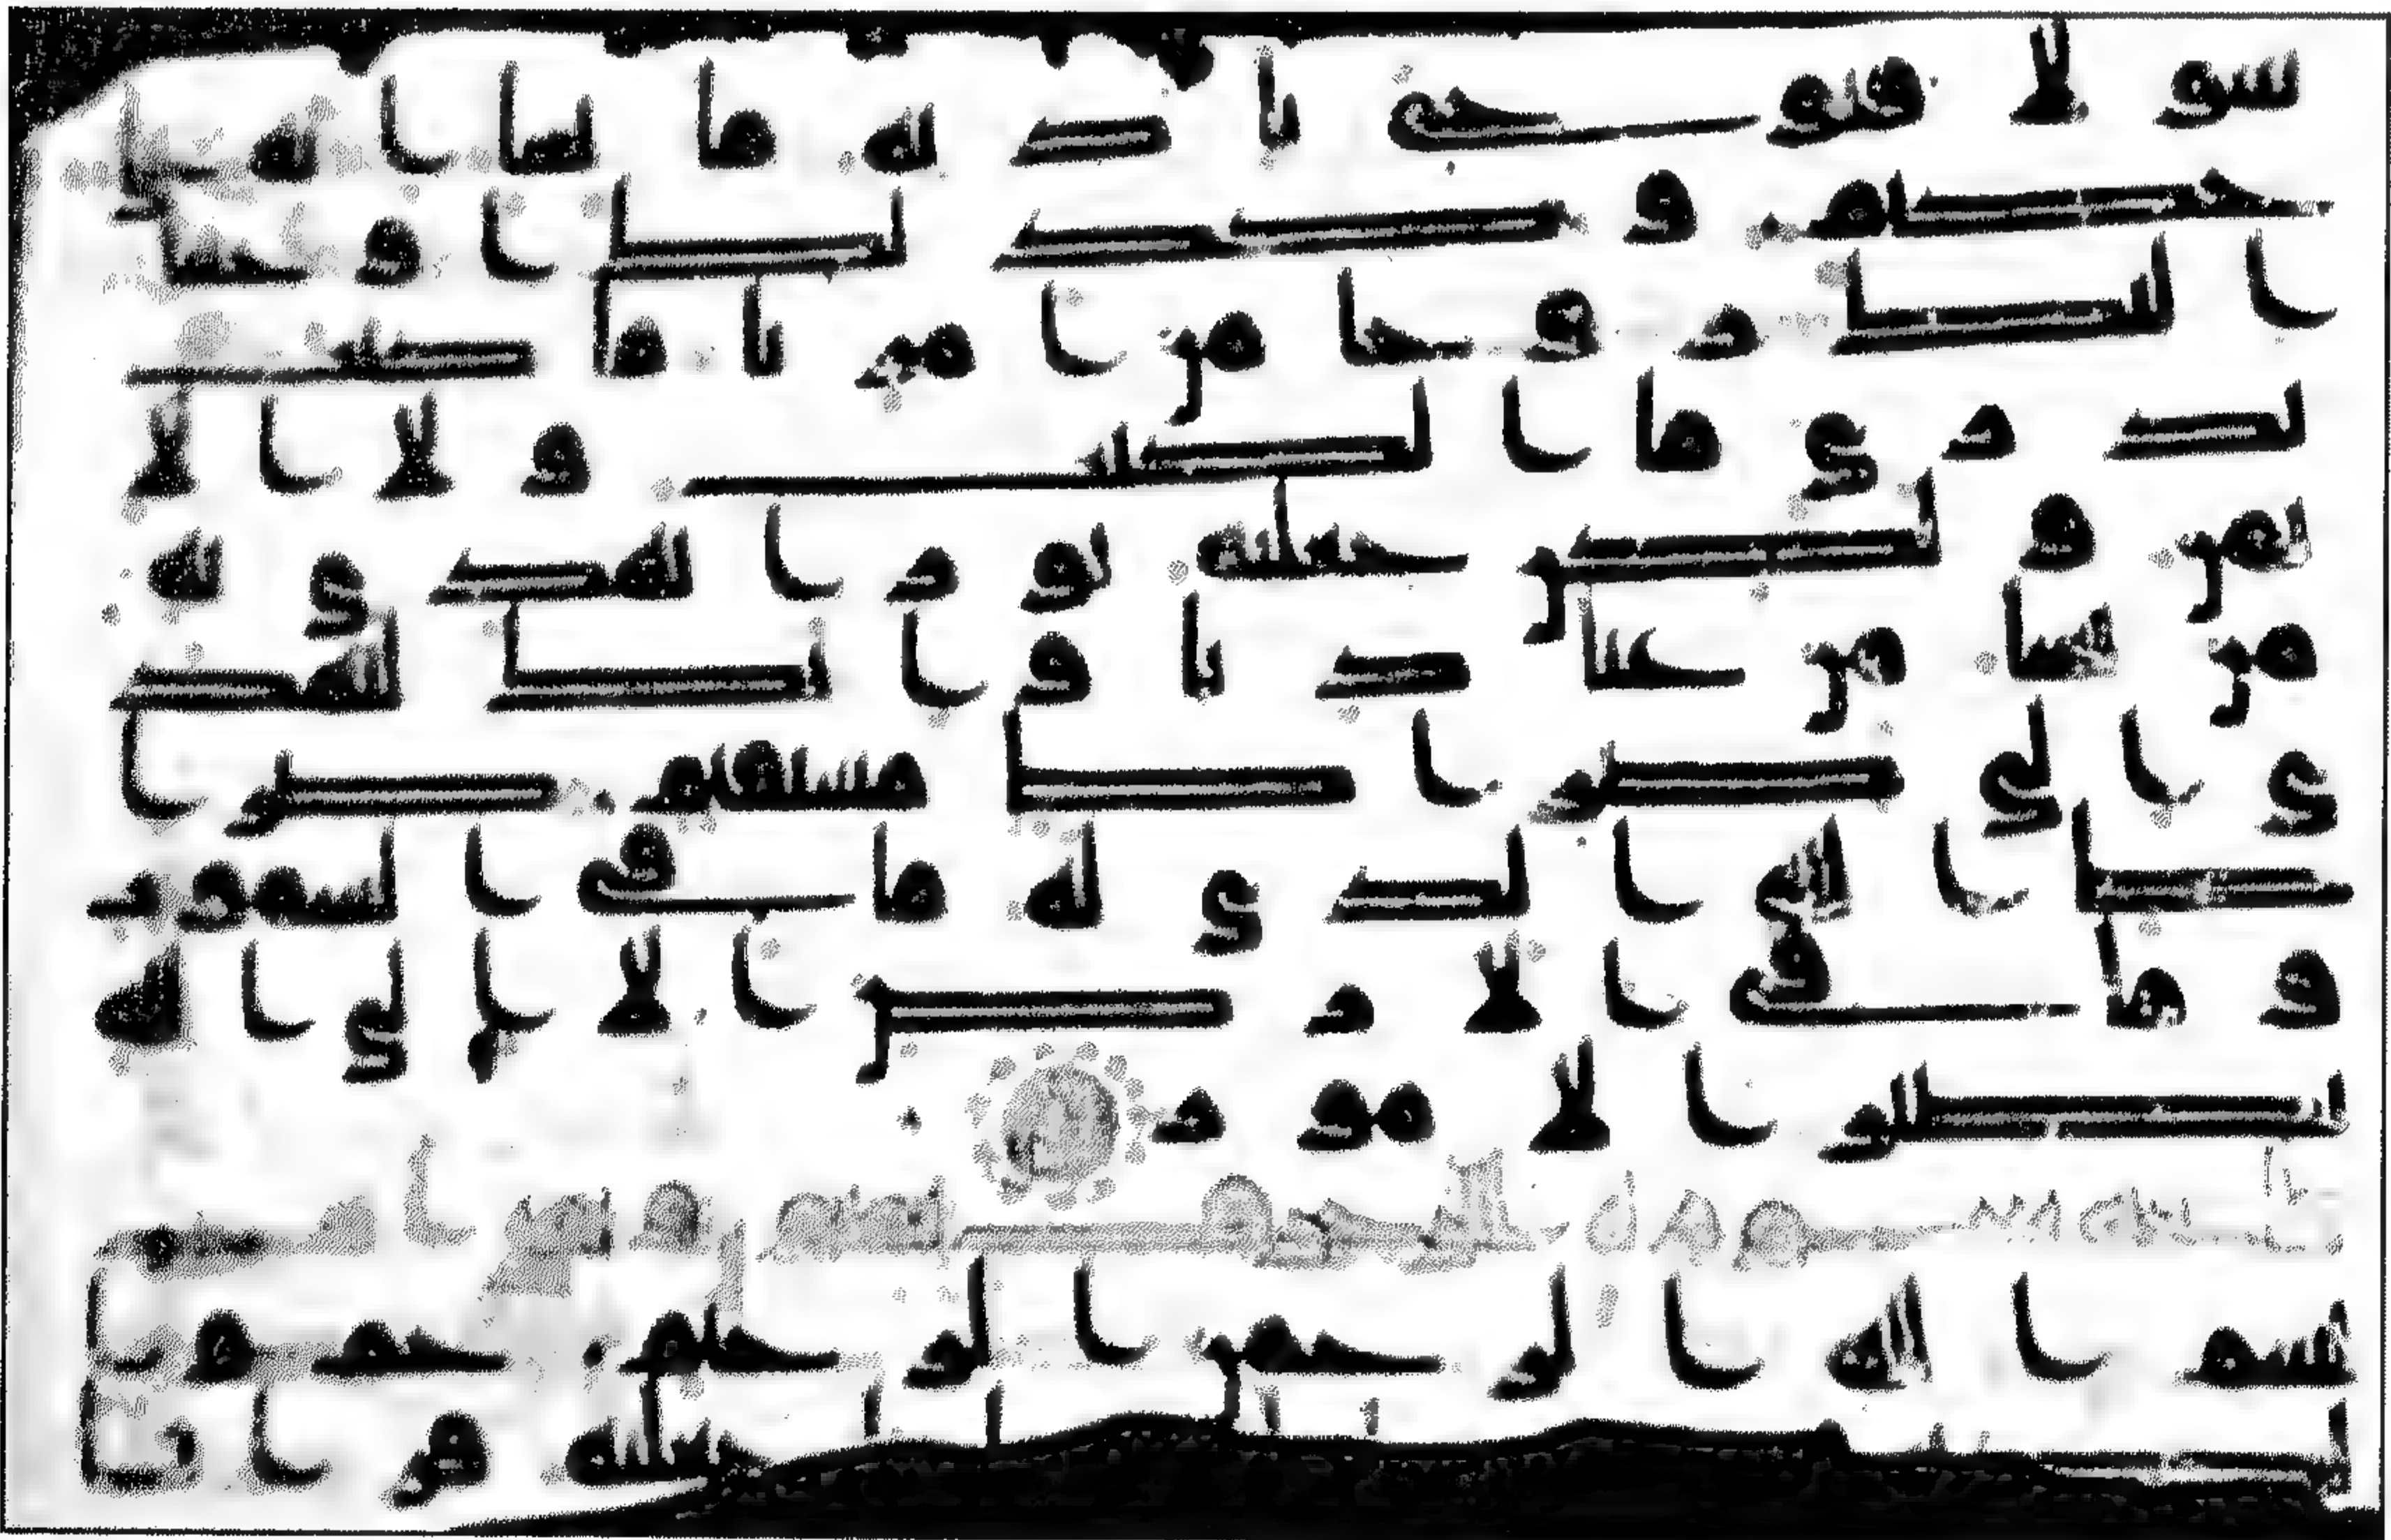 سولا فيوحي باذنه ما يشا انه علي
حكيم وكذلك اوحينا
اليك روحا من امرنا ما كنت
تدري ما الكتب ولا الا
يمن ولكن جعلنه نورا نهدي به
من نشا من عبادنا وانك لتهد
ي الي صرط مستقيم صر
ط الله الذي له ما في السموت
وما في الارض الا الي الله
تصير الامور
بسم الله الرحمن الرحيم حم وا
لكتب جعلنه قرانا